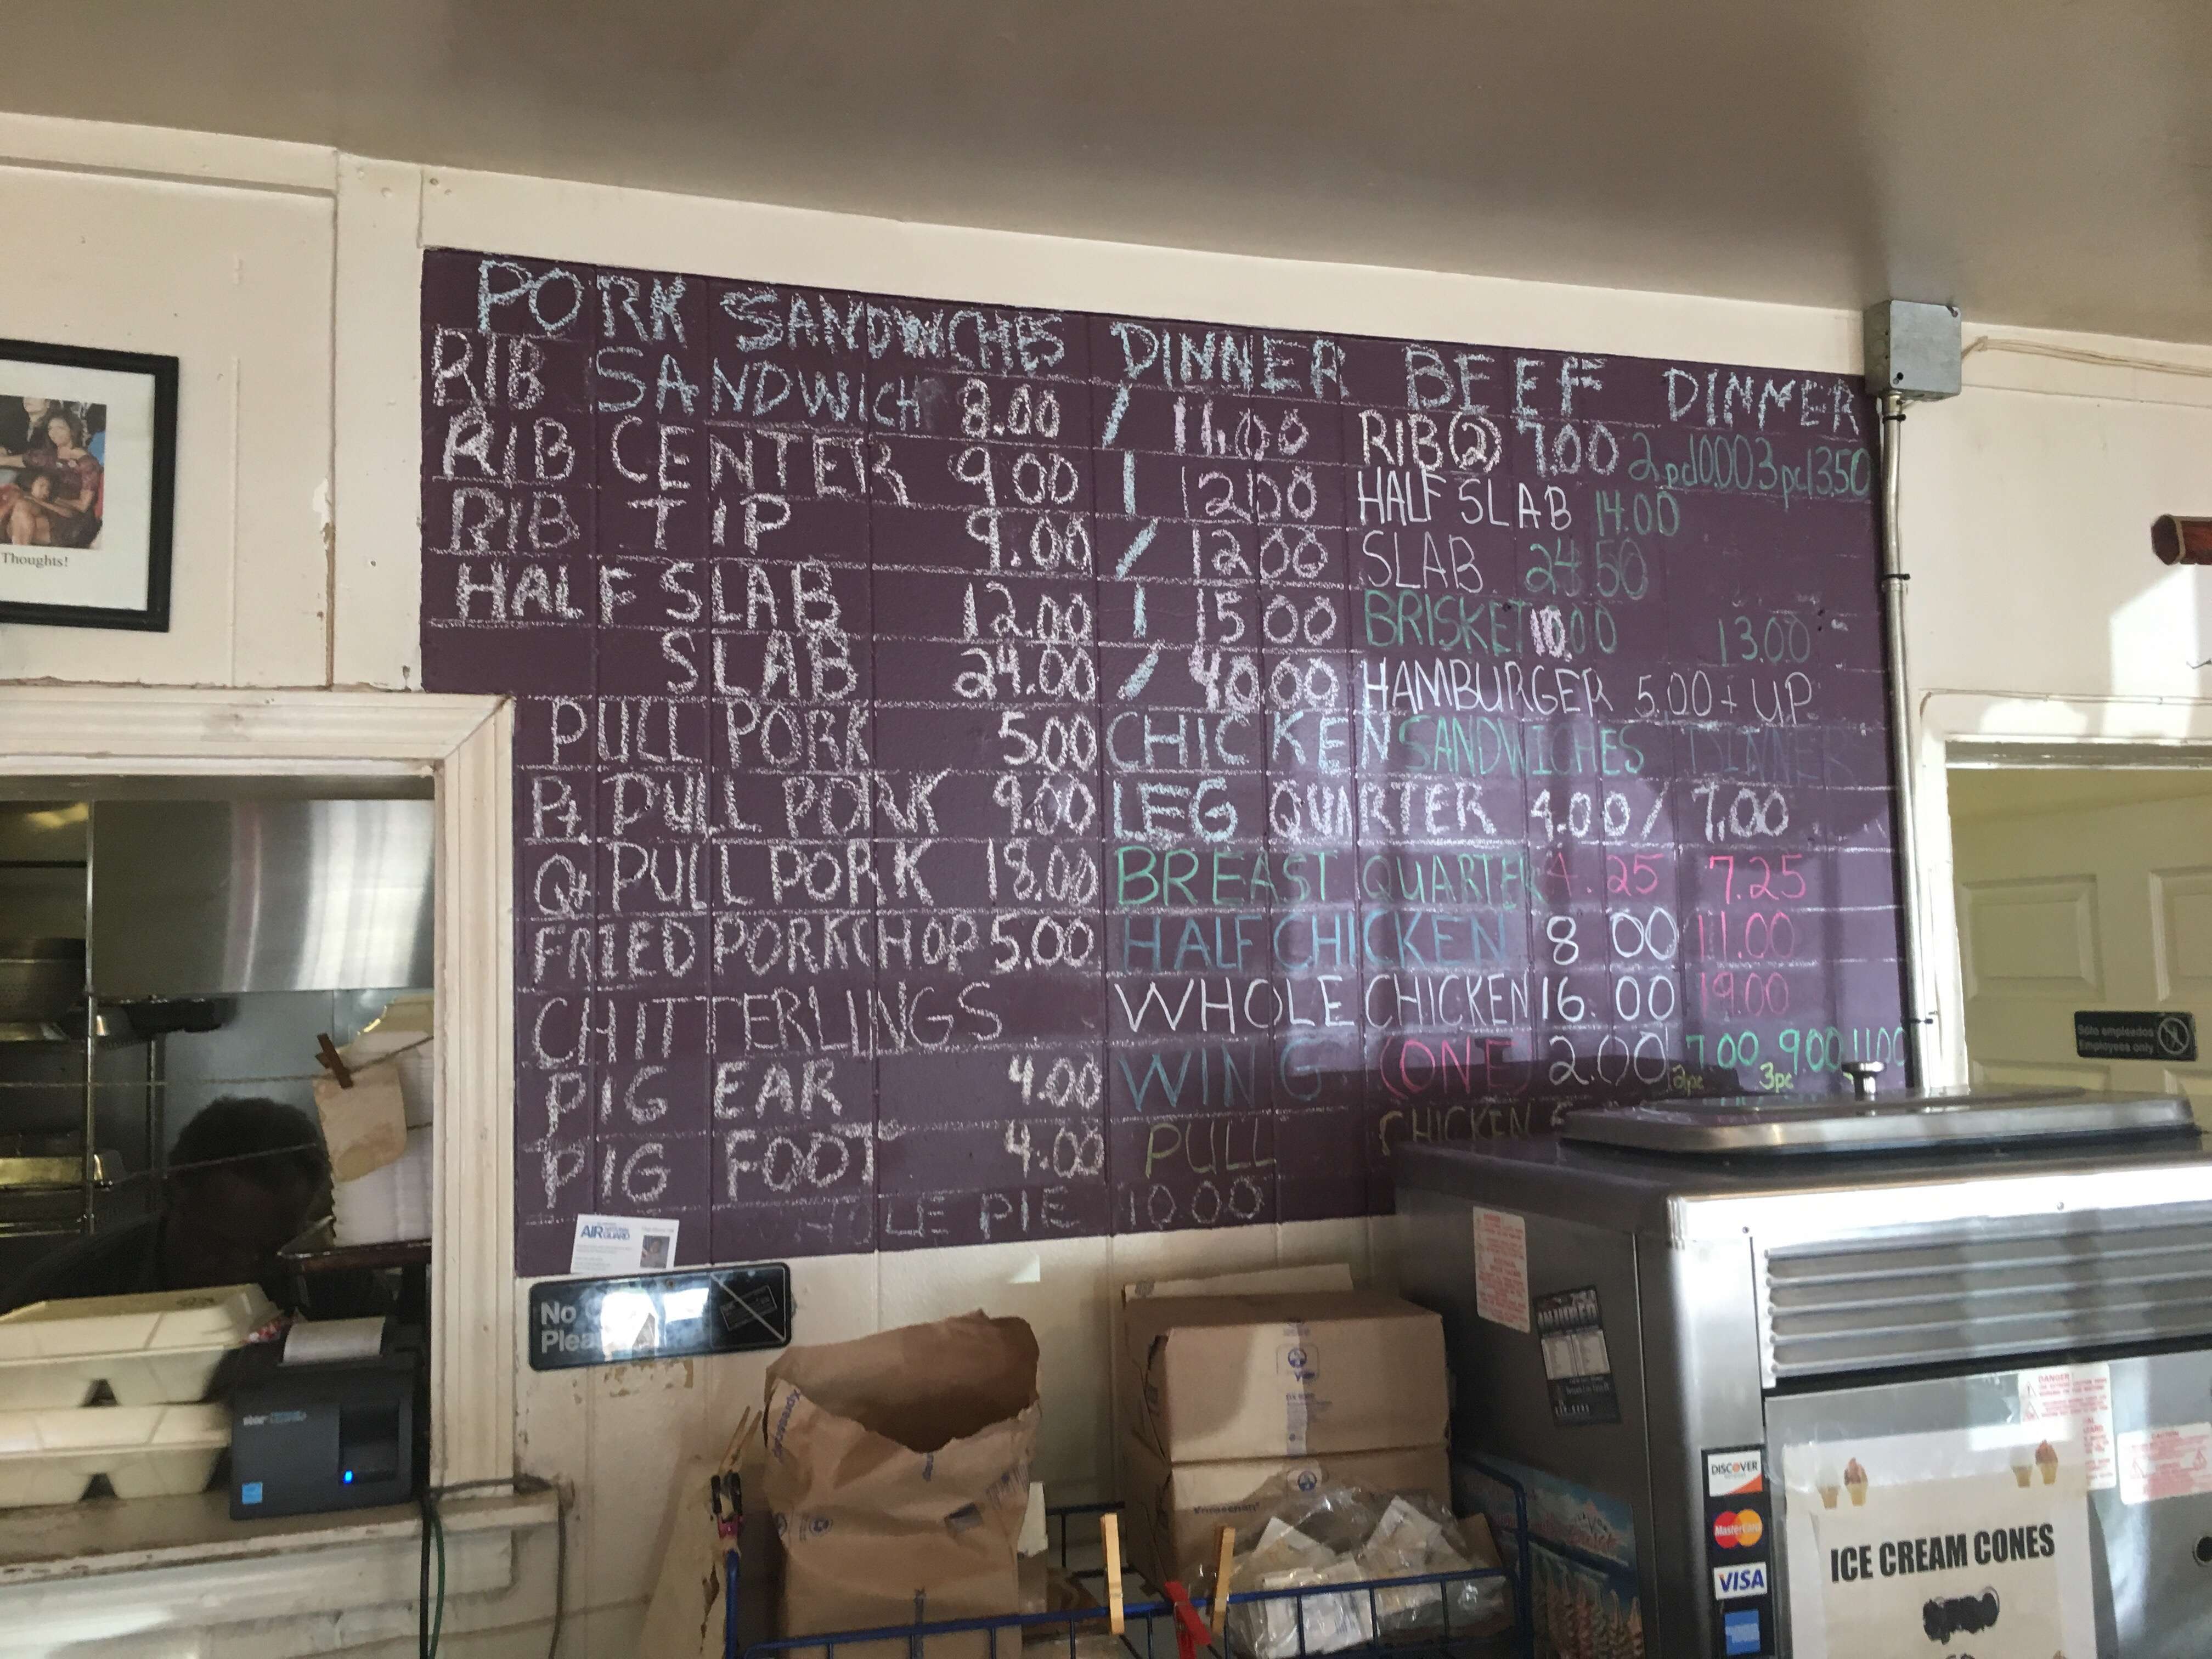 PORK SANDWICHES DINNER
RIB SANDWICH 8.00 / 11.00
RIB CENTER 9.00 / 12.00
RIB TIP 9.00 / 12.00
HALF SLAB 12.00 / 15.00
SLAB 24.00 / 40.00
PULL PORK 5.00
Pt. PULL PORK 9.00
Qt PULL PORK 18.00
FRIED PORKCHOP 5.00
CHITTERLINGS
PIG EAR 4.00
PIG FOOT 4.00
WHOLE PIE 10.00
BEEF DINNER
RIB 2 7.00 2pc 10.00 3pc 13.50
HALF SLAB 14.00
SLAB 24.50
BRISKET 10.00 13.00
HAMBURGER 5.00 + UP
CHICKEN SANDWICHES DINNER
LEG QUARTER 4.00 / 7.00
BREAST QUARTER 4.25 7.25
HALF CHICKEN 8.00 11.00
WHOLE CHICKEN 16.00 19.00
WING (ONE) 2.00 7.00 9.00 11.00
2pc 3pc
PULL CHICKEN
Thoughts!
AIR NATIONAL GUARD
No
star
Sólo empleados
Employees only
DANGER
DISCOVER
MasterCard
VISA
ICE CREAM CONES